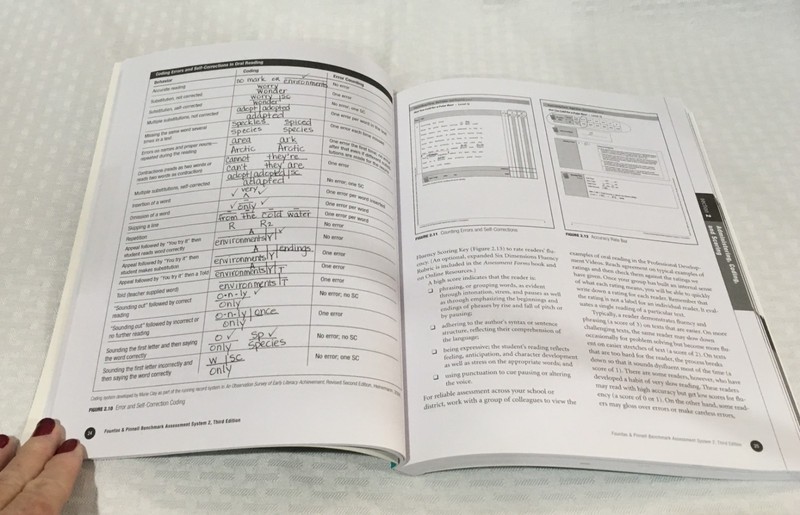 Coding Errors and Self-Corrections in Oral Reading
Behavior Coding Error Counting
Accurate reading no mark or ✓ environments No error
Substitution, not corrected worry One error
wonder
Substitution, self-corrected worry |SC No error; one SC
wonder
Multiple substitutions, not corrected adopt|adopted One error per word in the text
adapted
Missing the same word several speckles spiced One error each time missed
times in a text species species
Errors on names and proper nouns— area ark One error the first time
repeated during the reading Arctic Arctic
Contractions (reads as two words or cannot they're One error
reads two words as contraction) can't they are
Multiple substitutions, self-corrected adopt|adopted|SC No error; one SC
adapted
Insertion of a word very One error per word inserted
Omission of a word only One error per word
Skipping a line from the cold water One error per word
Repetition R R2 No error
Appeal followed by "You try it" then A No error
student reads word correctly environments|Y|
Appeal followed by "You try it" then A |endings One error
student makes substitution environments|Y|
Appeal followed by "You try it" then a Told A One error
environments|Y|T
Told (teacher supplied word) environments|T One error
"Sounding out" followed by correct o-n-ly ✓ No error; no SC
reading only
"Sounding out" followed by incorrect or o-n-ly|once One error
no further reading only
Sounding the first letter and then saying o ✓ sp ✓ No error; no SC
the word correctly only species
Sounding the first letter incorrectly and w |SC No error; one SC
then saying the word correctly only
Coding system developed by Marie Clay as part of the running record system in An Observation Survey of Early Literacy Achievement, Revised Second Edition, Heinemann
FIGURE 2.10 Error and Self-Correction Coding
24 Fountas & Pinnell Benchmark Assessment System 2, Third Edition
FIGURE 2.11 Counting Errors and Self-Corrections
FIGURE 2.12 Accuracy Rate Bar
Fluency Scoring Key (Figure 2.13) to rate readers' flu-
ency. (An optional, expanded Six Dimensions Fluency
Rubric is included in the Assessment Forms book and
on Online Resources.)
A high score indicates that the reader is:
❑ phrasing, or grouping words, as evident
through intonation, stress, and pauses as well
as through emphasizing the beginnings and
endings of phrases by rise and fall of pitch or
by pausing;
❑ adhering to the author's syntax or sentence
structure, reflecting their comprehension of
the language;
❑ being expressive; the student's reading reflects
feeling, anticipation, and character development
as well as stress on the appropriate words; and
❑ using punctuation to cue pausing or altering
the voice.
For reliable assessment across your school or
district, work with a group of colleagues to view the
examples of oral reading in the Professional Develop-
ment Videos. Reach agreement on typical examples of
ratings and then check them against the ratings we
have given. Once your group has built an internal sense
of what each rating means, you will be able to quickly
write down a rating for each reader. Remember that
the rating is not a label for an individual reader. It eval-
uates a single reading of a particular text.
Typically, a reader demonstrates fluency and
phrasing (a score of 3) on texts that are easier. On more
challenging texts, the same reader may slow down
occasionally for problem solving but become more flu-
ent on easier stretches of text (a score of 2). On texts
that are too hard for the reader, the process breaks
down so that it sounds dysfluent most of the time (a
score of 1). There are some readers, however, who have
developed a habit of very slow reading. These readers
may read with high accuracy but get low scores for flu-
ency (a score of 0 or 1). On the other hand, some read-
ers may gloss over errors or make careless errors,
SECTION 2
Administration, Coding,
and Scoring
Fountas & Pinnell Benchmark Assessment System 2, Third Edition 25